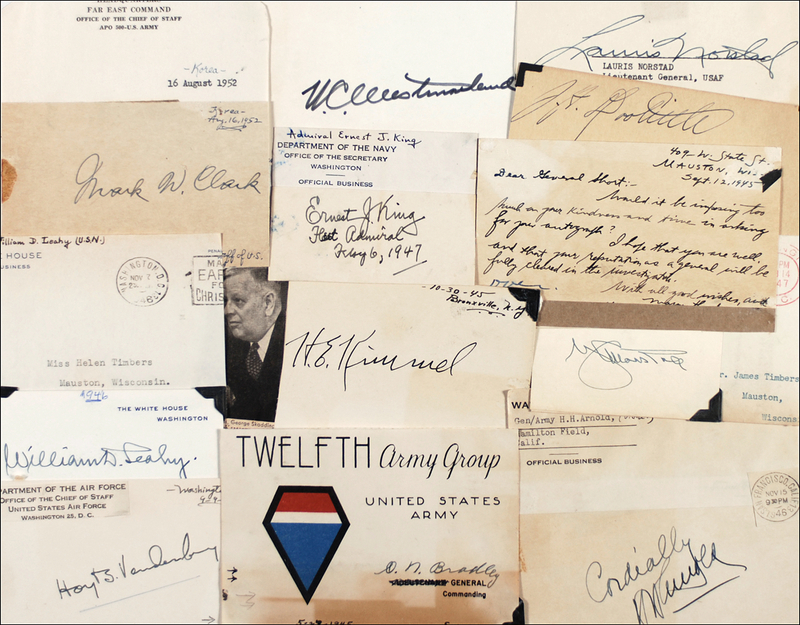 HEADQUARTERS
FAR EAST COMMAND
OFFICE OF THE CHIEF OF STAFF
APO 500-U.S. ARMY
-Korea-
16 August 1952
Aug. 16, 1952
Mark W. Clark
W.C. Westmoreland
Lauris Norstad
LAURIS NORSTAD
Lieutenant General, USAF
J.H. Doolittle
Admiral Ernest J. King
DEPARTMENT OF THE NAVY
OFFICE OF THE SECRETARY
WASHINGTON
OFFICIAL BUSINESS
Ernest J. King
Fleet Admiral
May 6, 1947
409 W. State St.
MAUSTON, Wis.
Sept. 12, 1945
Dear General Short:-
Would it be imposing too
much on your kindness and time in asking
for your autograph?
I hope that you are well,
and that your reputation as a general will be
fully cleared in the investigation.
With all good wishes, and
William D. Leahy (U.S.N.)
HOUSE
BUSINESS
WASHINGTON, D.C.
NOV 2
MAIL
EARLY
FOR
CHRIS
Miss Helen Timbers
Mauston, Wisconsin.
1946
THE WHITE HOUSE
WASHINGTON
William D. Leahy.
10-30-45
Bronxville, N.Y.
H.E. Kimmel
George Skadding
r. James Timbers
Mauston,
Wiscons
WA
Gen/Army H.H. Arnold,
Hamilton Field,
Calif.
OFFICIAL BUSINESS
SAN FRANCISCO, CALIF.
NOV 15
9 30 PM
1946
Cordially
HH Arnold
DEPARTMENT OF THE AIR FORCE
OFFICE OF THE CHIEF OF STAFF
UNITED STATES AIR FORCE
WASHINGTON 25, D. C.
-Washington
Hoyt S. Vandenberg
TWELFTH Army Group
UNITED STATES
ARMY
O. N. Bradley
LIEUTENANT GENERAL
Commanding